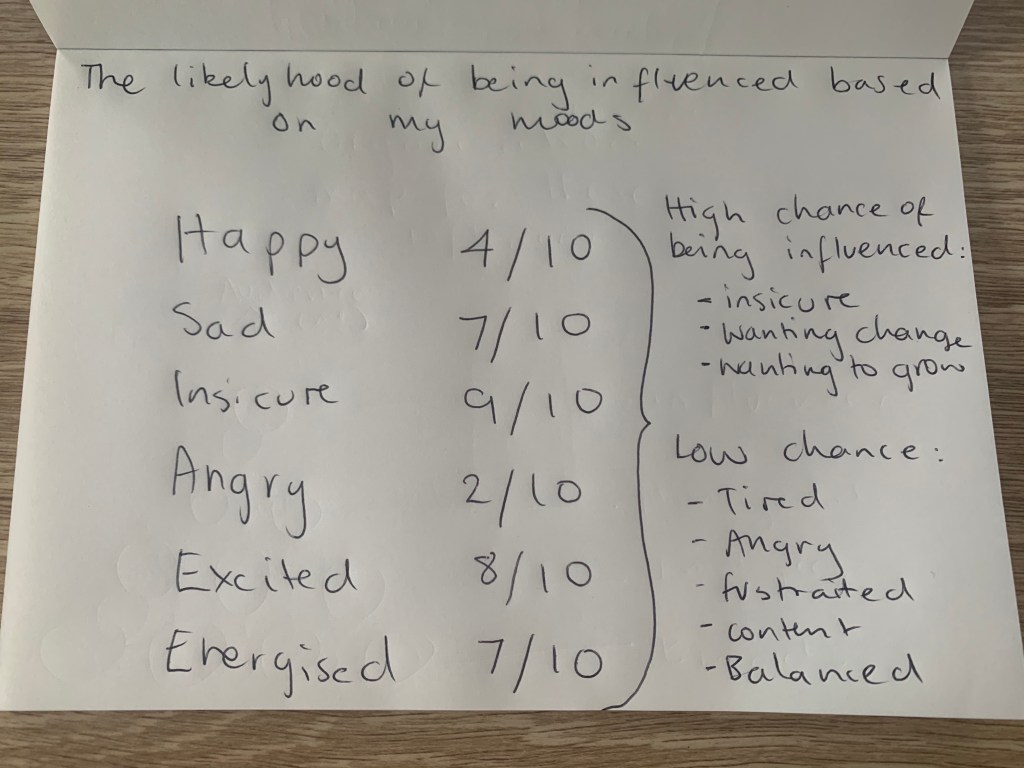 The likelyhood of being influenced based
on my moods
Happy 4/10
Sad 7/10
Insicure 9/10
Angry 2/10
Excited 8/10
Energised 7/10
High chance of
being influenced:
- insicure
- wanting change
- wanting to grow
Low chance:
- Tired
- Angry
- fustrated
- content
- Balanced